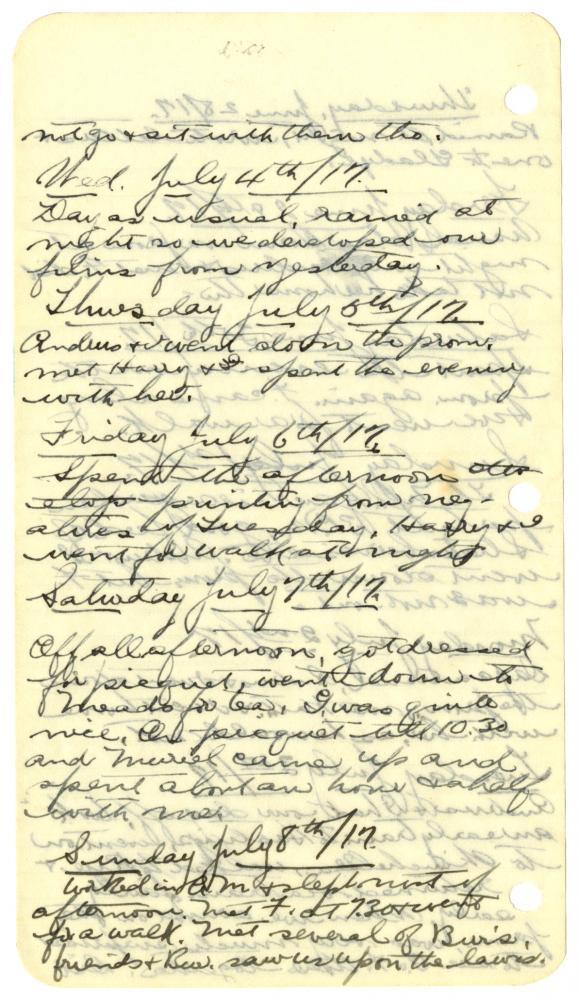 not go & sit with them tho.
Wed. July 4th/17.
Day as usual, rained at
night so we developed our
films from yesterday.
Thursday July 5th/17.
Andrus & I went down the prom.
met Harry & I spent the evening
with her.
Friday July 6th/17.
Spent the afternoon
printin from neg-
atives of Tuesday, Harry & I
went for walk at night
Saturday July 7th/17.
Off all afternoon, got dressed
for picquet, went down to
Meads for tea. I was quite
nice. On picquet till 10.30
and Muriel came up and
spent about an hour & a half
with me.
Sunday July 8th/17.
Worked in A.M. & slept most of
afternoon. Met F. at 7.30 & went
for a walk. Met several of Bur's
friends & Bur. saw us upon the lawns.